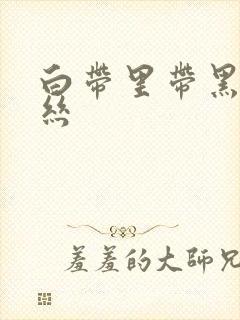 白帶里帶黑
絲
羞羞的大師兄